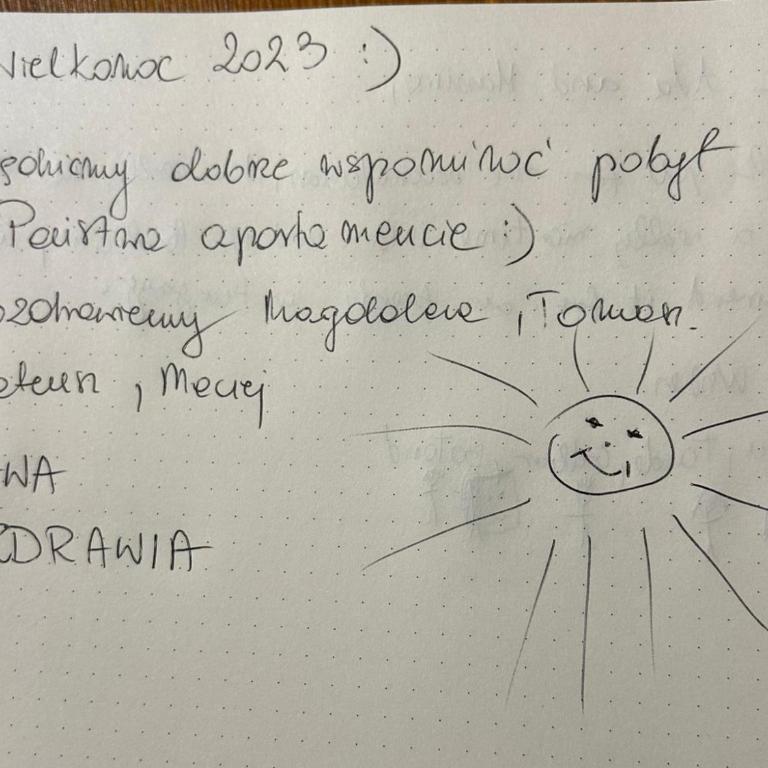 Wielkanoc 2023 :)
będziemy dobrze wspominać pobyt
Państwa apartamencie :)
ozdrawiemy Magdalena, Tomasz.
, Maciej
WA
ZDRAWIA